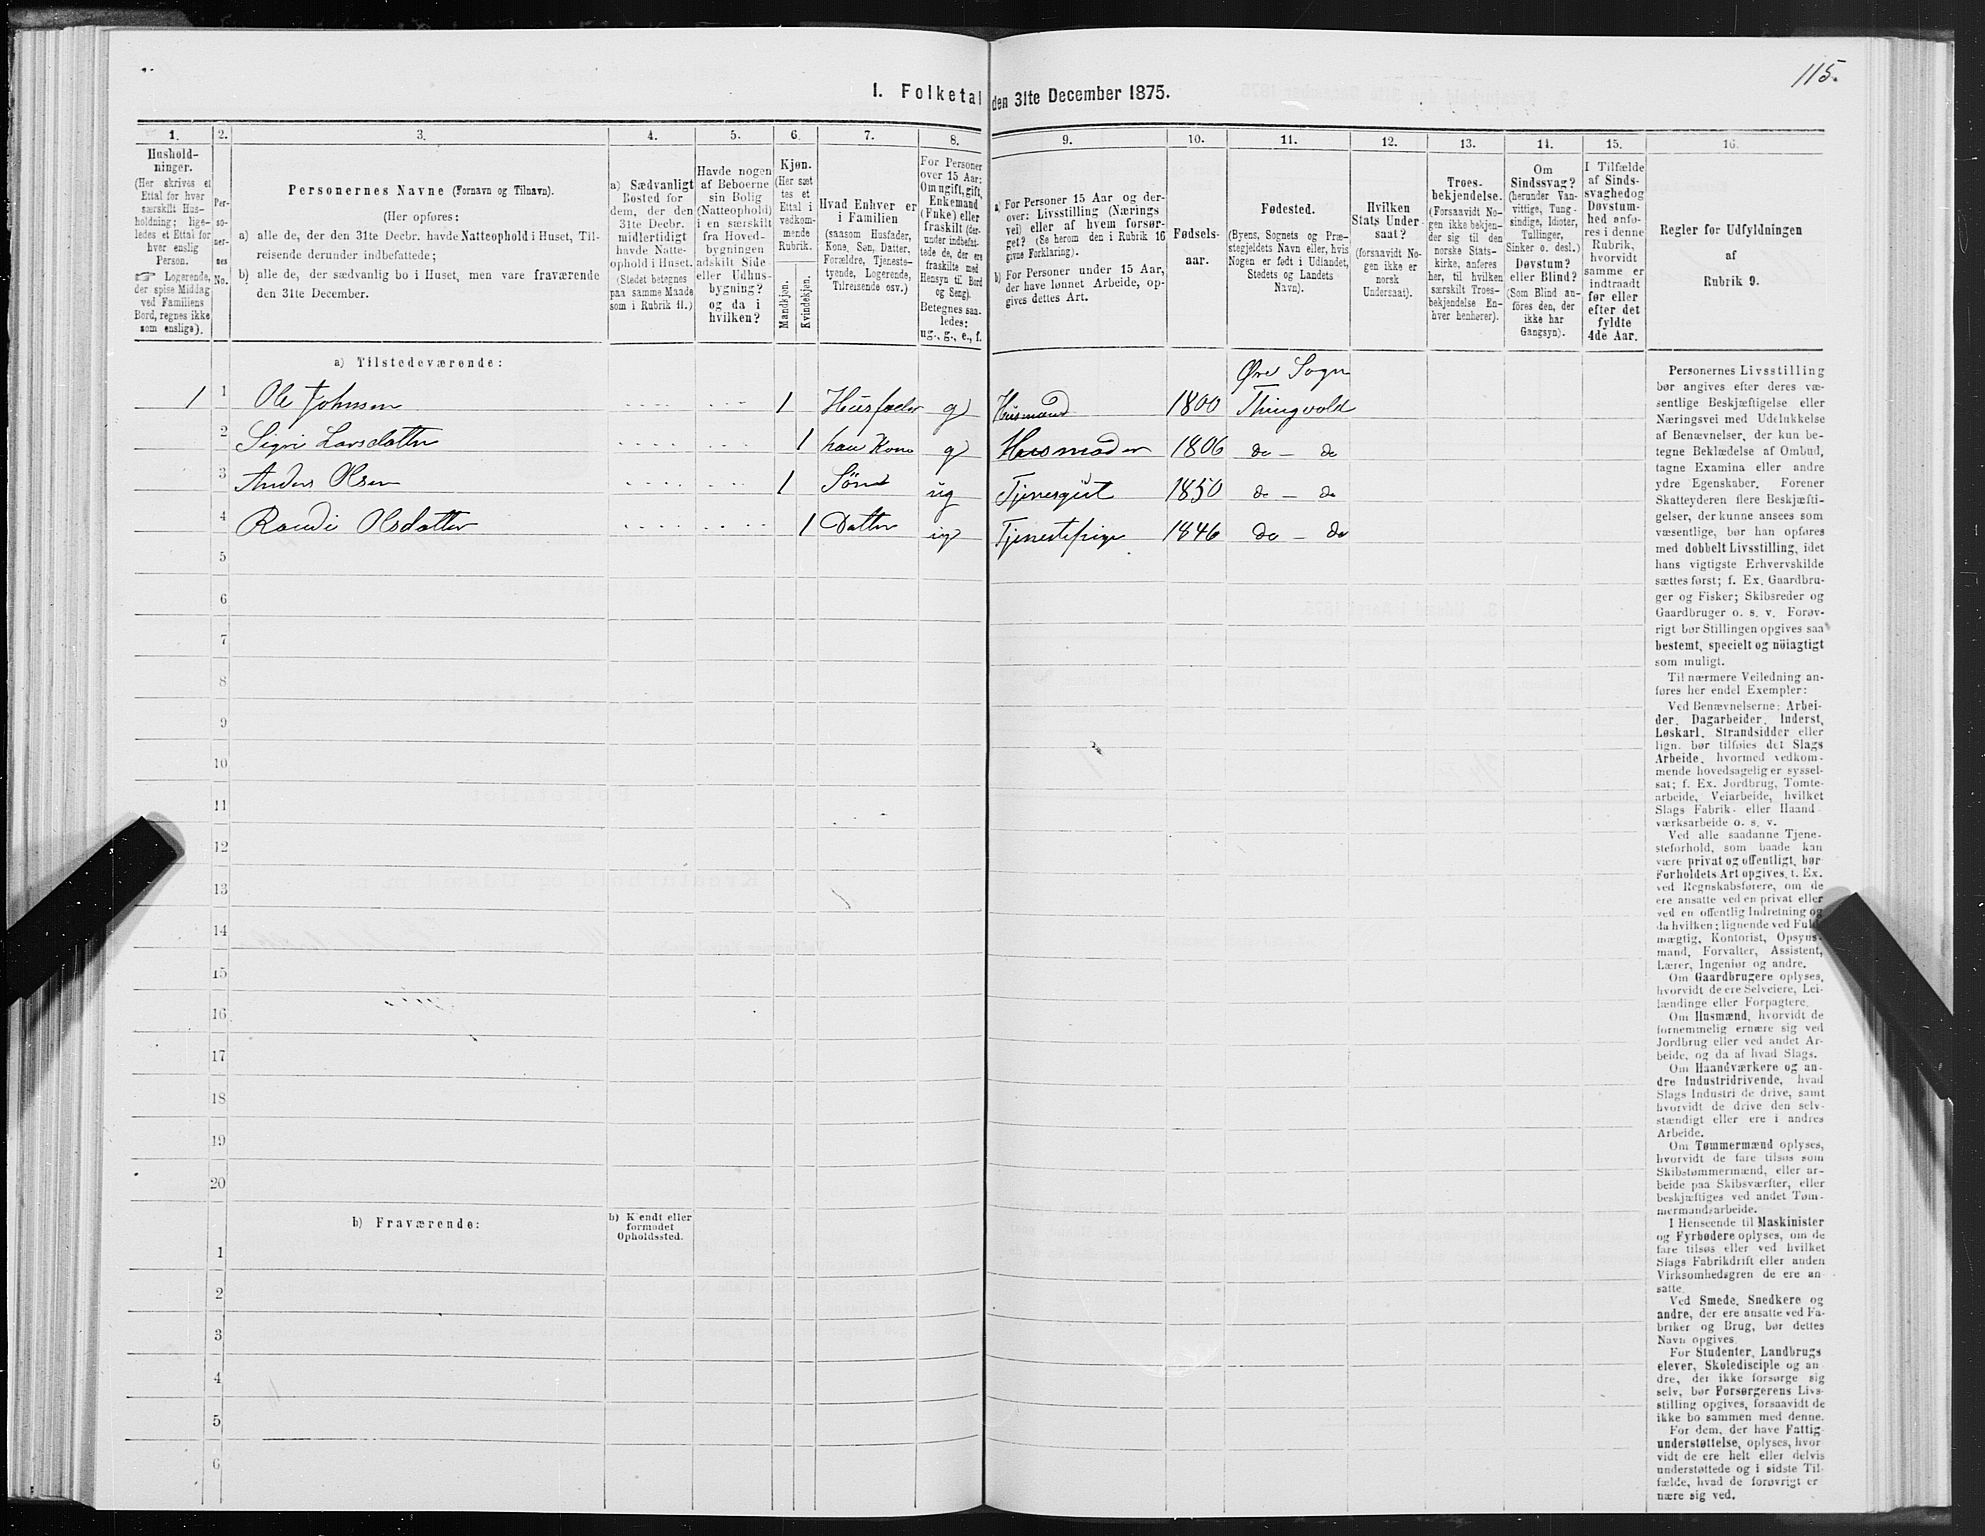 115.
I. Folketal den 31te December 1875.
1. 2. 3. 4. 5. 6. 7. 8. 9. 10. 11. 12. 13. 14. 15. 16.
Hushold-
ninger.
(Her skrives et
Ettal for hver
særskilt Hus-
holdning; lige-
ledes et Ettal for
hver enslig
Person.
☞ Logerende,
der spise Middag
ved Familiens
Bord, regnes ikke
som enslige).
Per-
so-
ner-
nes
No.
Personernes Navne (Fornavn og Tilnavn).
(Her opføres:
a) alle de, der den 31te Decbr. havde Natteophold i Huset, Til-
reisende derunder indbefattede;
b) alle de, der sædvanlig bo i Huset, men vare fraværende
den 31te December.
a) Sædvanligt
Bosted for
dem, der den
31te Decbr.
midlertidigt
havde Natte-
ophold i Huset.
(Stedet betegnes
paa samme Maade
som i Rubrik 11.)
Havde nogen
af Beboerne
sin Bolig
(Natteophold)
i en særskilt
fra Hoved-
bygningen
adskilt Side-
eller Udhus-
bygning?
og da i
hvilken?
Kjøn.
(Her sæt
tes et
Ettal i
vedkom-
mende
Rubrik.
Mandkjøn.
Kvindekjøn.
Hvad Enhver er
i Familien
(saasom Husfader,
Kone, Søn, Datter,
Forældre, Tjeneste-
tyende, Logerende,
Tilreisende osv.)
For Personer
over 15 Aar:
Om ugift, gift,
Enkemand
(Enke) eller
fraskilt (der-
under indbefat-
tede de, der ere
fraskilte med
Hensyn til Bord
og Seng).
Betegnes saa-
ledes:
ug., g., e., f.
a) For Personer 15 Aar og der-
over: Livsstilling (Nærings
vei) eller af hvem forsør-
get? (Se herom den i Rubrik 16
givne Forklaring).
b) For Personer under 15 Aar,
der have lønnet Arbeide, op-
gives dettes Art.
Fødsels-
aar.
Fødested.
(Byens, Sognets og Præ-
stegjeldets Navn eller, hvis
Nogen er født i Udlandet,
Stedets og Landets
Navn).
Hvilken
Stats Under-
saat?
(forsaavidt No-
gen ikke er
norsk
Undersaat).
Troes-
bekjendelse.
(Forsaavidt No-
gen ikke bekjen-
der sig til den
norske Stats-
kirke, anføres
her, til hvilken
særskilt Troes-
bekjendelse En-
hver henhører).
Om
Sindssvag?
(herunder Van-
vittige, Tung-
sindige, Idioter,
Tullinger,
Sinker o. desl.)
Døvstum?
eller Blind?
(Som Blind an-
føres den, der
ikke har
Gangsyn).
I Tilfælde
af Sinds-
svaghed og
Døvstum-
hed anfø-
res i denne
Rubrik,
hvorvidt
samme er
indtraadt
før eller
efter det
fyldte
4de Aar.
Regler for Udfyldningen
af
Rubrik 9.
a) Tilstedeværende:
Øre Sogn
1 1 Ole Johnsen 1 Husfader g Husmand 1800 Thingvold
2 Sigri Larsdatter 1 hans Kone g Husmoder 1806 do – do
3 Anders Olsen 1 Søn ug Tjenesgut 1850 do – do
4 Randi Olsdatter 1 Datter ug Tjenestepige 1846 do – do
5
6
7
8
9
10
11
12
13
14
15
16
17
18
19
20
b) Fraværende:
b) Kjendt eller
formodet
Opholdssted.
1
2
3
4
5
6
Personernes Livsstilling
bør angives efter deres væ-
sentlige Beskjæftigelse eller
Næringsvei med Udelukkelse
af Benævnelser, der kun be-
tegne Beklædelse af Ombud,
tagne Examina eller andre
ydre Egenskaber. Forener
Skatteyderen flere Beskjæfti-
gelser, der kunne ansees som
væsentlige, bør han opføres
med dobbelt Livsstilling, idet
hans vigtigste Erhvervskilde
sættes først; f. Ex. Gaardbru-
ger og Fisker; Skibsreder og
Gaardbruger o. s. v. Forøv-
rigt bør Stillingen opgives saa
bestemt, specielt og nöiagtigt
som muligt.
Til nærmere Veiledning an-
føres her endel Exempler:
Ved Benævnelserne: Arbei-
der, Dagarbeider, Inderst,
Løskarl, Strandsidder eller
lign. bør tilføies det Slags
Arbeide, hvormed vedkom-
mende hovedsagelig er syssel-
sat; f. Ex. Jordbrug, Tomte-
arbeide, Veiarbeide, hvilket
Slags Fabrik- eller Haand-
værksarbeide o. s. v.
Ved alle saadanne Tjene-
steforhold, som baade kan
være privat og offentligt, bør
Forholdets Art opgives, f. Ex.
ved Regnskabsførere, om de
ere ansatte ved en privat eller
ved en offentlig Indretning og
da hvilken; lignende ved Fuld-
mægtig, Kontorist, Opsyns-
mand, Forvalter, Assistent,
Lærer, Ingeniør og andre.
Om Gaardbrugere oplyses,
hvorvidt de ere Selveiere, Lei-
lændinge eller Forpagtere.
Om Husmænd, hvorvidt de
fornemmelig ernære sig ved
Jordbrug eller ved andet Ar-
beide, og da af hvad Slags.
Om Haandværkere og an-
dre Industridrivende, hvad
Slags Industri de drive, samt
hvorvidt de drive den selv-
stændigt eller ere i andres
Arbeide.
Om Tømmermænd oplyses,
hvorvidt de fare tilsøs som
Skibstømmermænd, eller ar-
beide paa Skibsværfter, eller
beskjæftiges ved andet Tøm-
mermandsarbeide.
I Henseende til Maskinister
og Fyrbødere oplyses, om de
fare tilsøs eller ved hvilket
Slags Fabrikdrift eller anden
Virksomhedsgren de ere an-
satte.
Ved Smede, Snedkere og
andre, der ere ansatte ved Fa-
briker og Brug, bør dettes
Navn opgives.
For Studenter, Landbrugs
elever, Skoledisciple og an-
dre, der ikke forsørge sig
selv, bør Forsørgerens Livs-
stilling opgives, forsaavidt de
ikke bo sammen med denne.
For dem, der have Fattig-
understøttelse, oplyses, hvor-
vidt de ere helt eller delvis
understøttede og i sidste Til-
fælde, hvad de forøvrigt er-
nære sig ved.